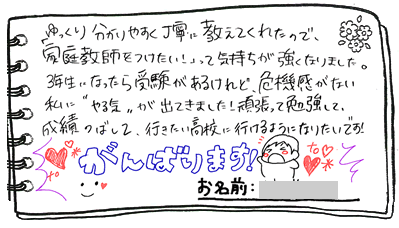 ゆっくり分かりやすく丁寧に教えてくれたので、
家庭教師をつけたい!!って気持ちが強くなりました。
3年生になったら受験があるけれど、危機感がない
私に"やる気"が出てきました!頑張って勉強して、
成績のばして、行きたい高校に行けるようになりたいです!
がんばります!
お名前: